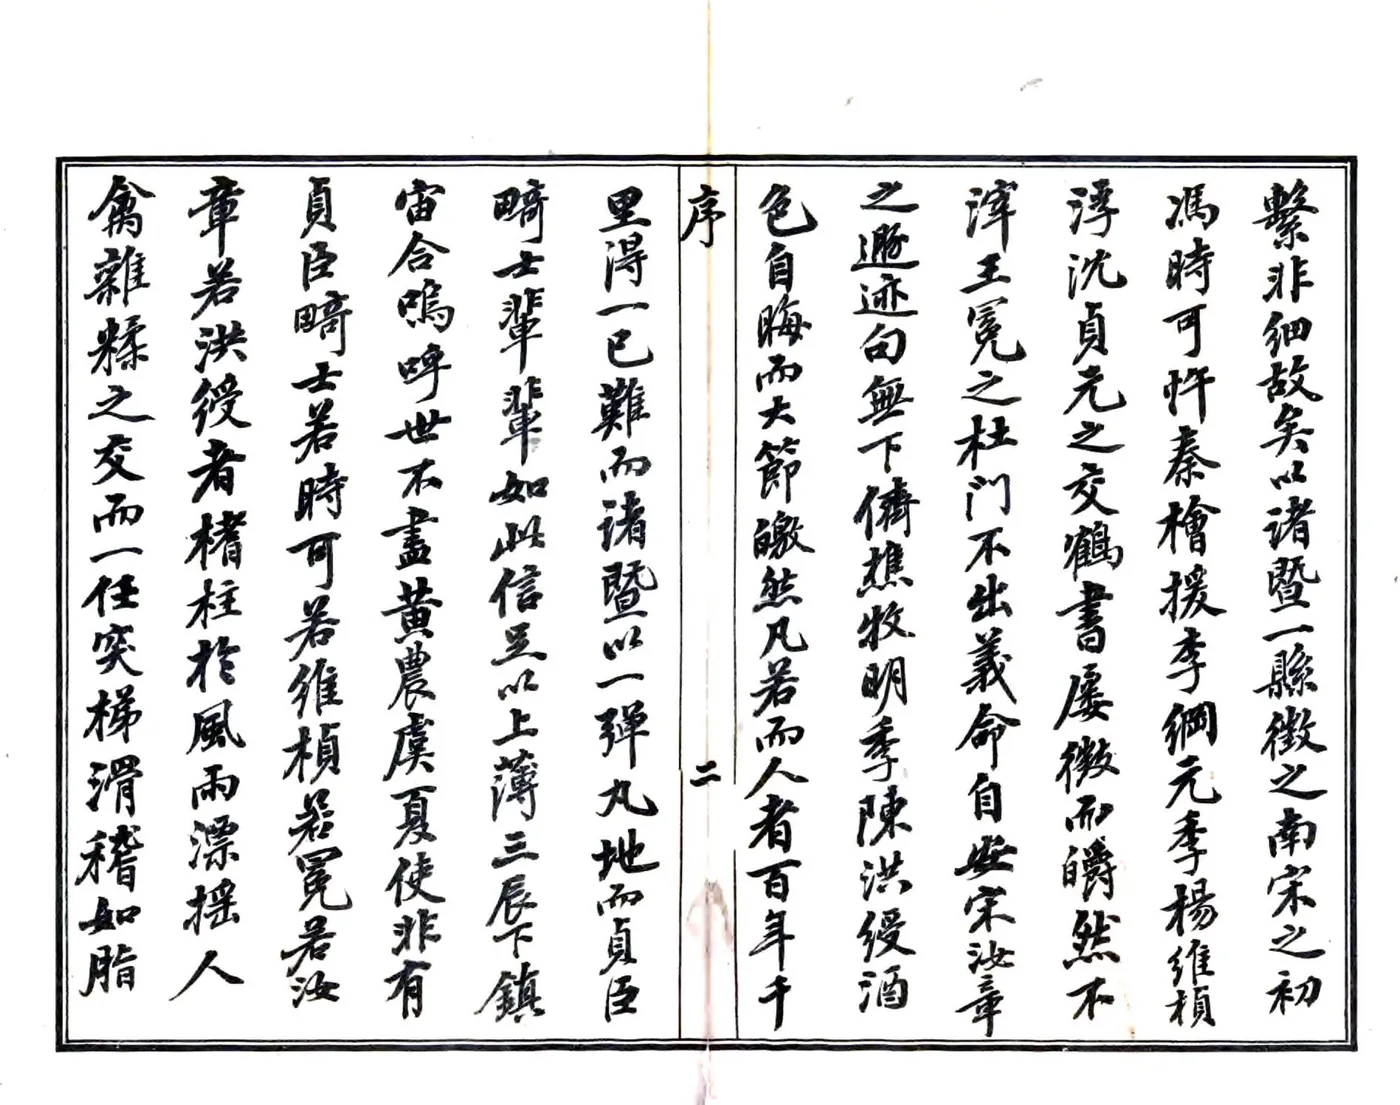 繫非細故矣以諸暨一縣徵之南宋之初
馮時可忤秦檜援李綱元季楊維楨
浮沈貞元之交鶴書屢徵而皭然不
滓王冕之杜門不出義命自安宋汝章
之遯迹句無下儕樵牧明季陳洪綬酒
色自晦而大節皦然凡若而人者百年千
序
二
里得一已難而諸暨以一彈丸地而貞臣
畸士輩輩如此信足以上薄三辰下鎮
宙合嗚呼世不盡黃農虞夏使非有
貞臣畸士若時可若維楨若冕若汝
章若洪綬者榰柱於風雨漂搖人
禽雜糅之交而一任突梯滑稽如脂